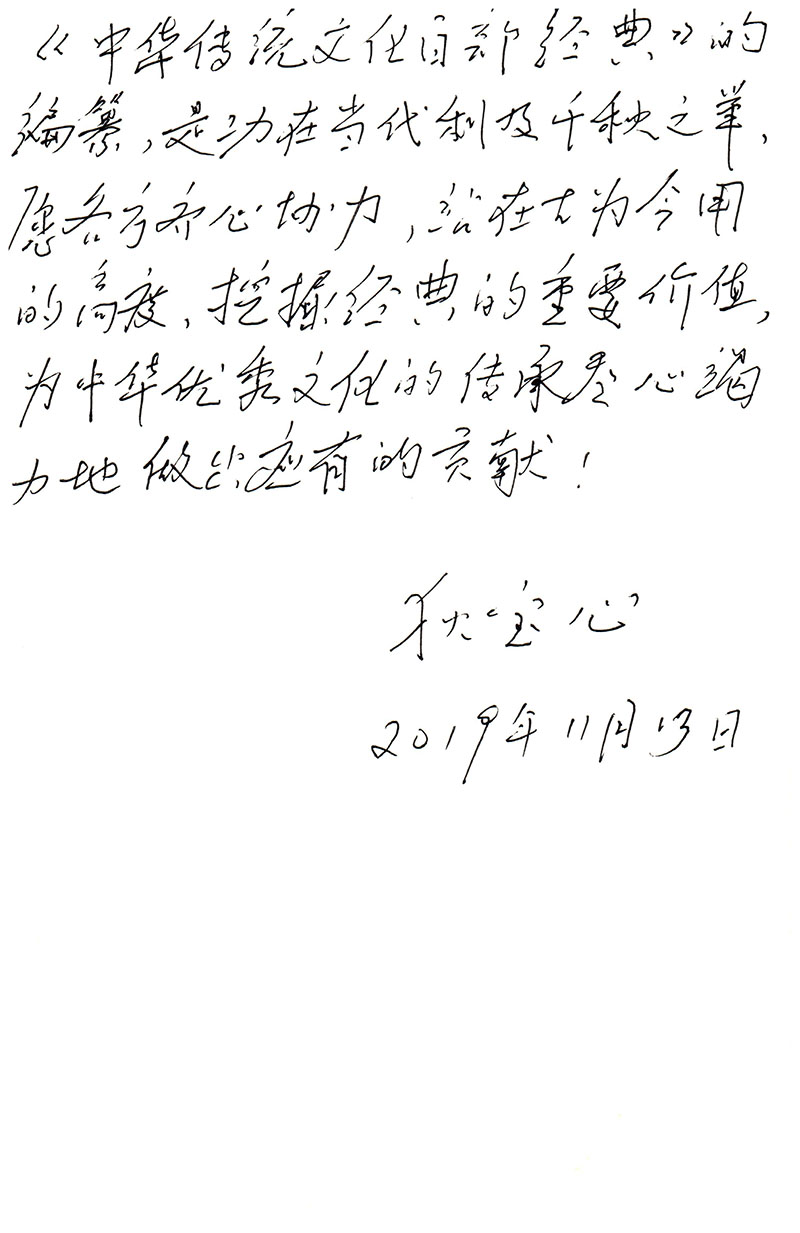 《中华传统文化百部经典》的
编纂,是功在当代利及千秋之举,
愿各方齐心协力,站在古为今用
的高度,挖掘经典的重要价值,
为中华优秀文化的传承尽心竭
力地做出应有的贡献!
狄宝心
2019年11月13日